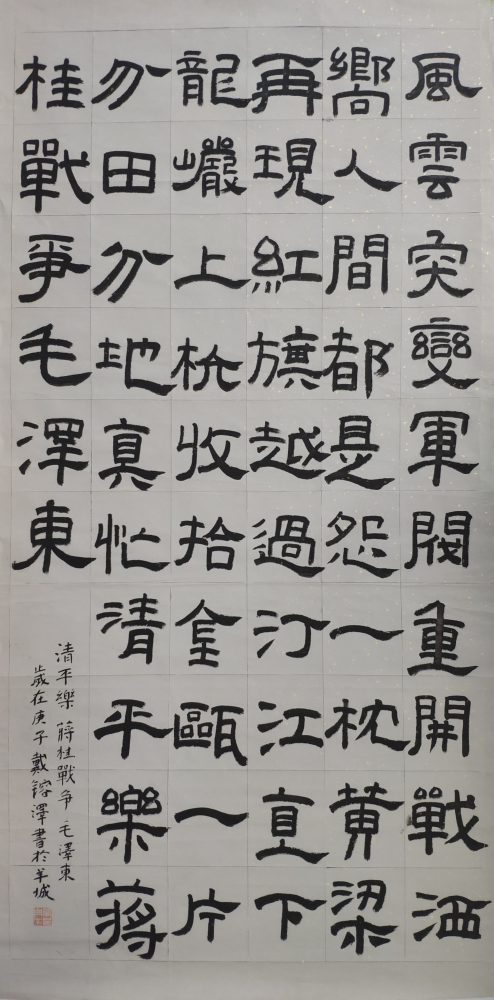 風雲突變軍閥重開戰洒
嚮人間都是怨一枕黄梁
再現紅旗越過汀江直下
龍巖上杭收拾金甌一片
分田分地真忙清平樂蔣
桂戰爭毛澤東
清平樂 蔣桂戰争 毛澤東
歲在庚子戴鎔澤書於羊城